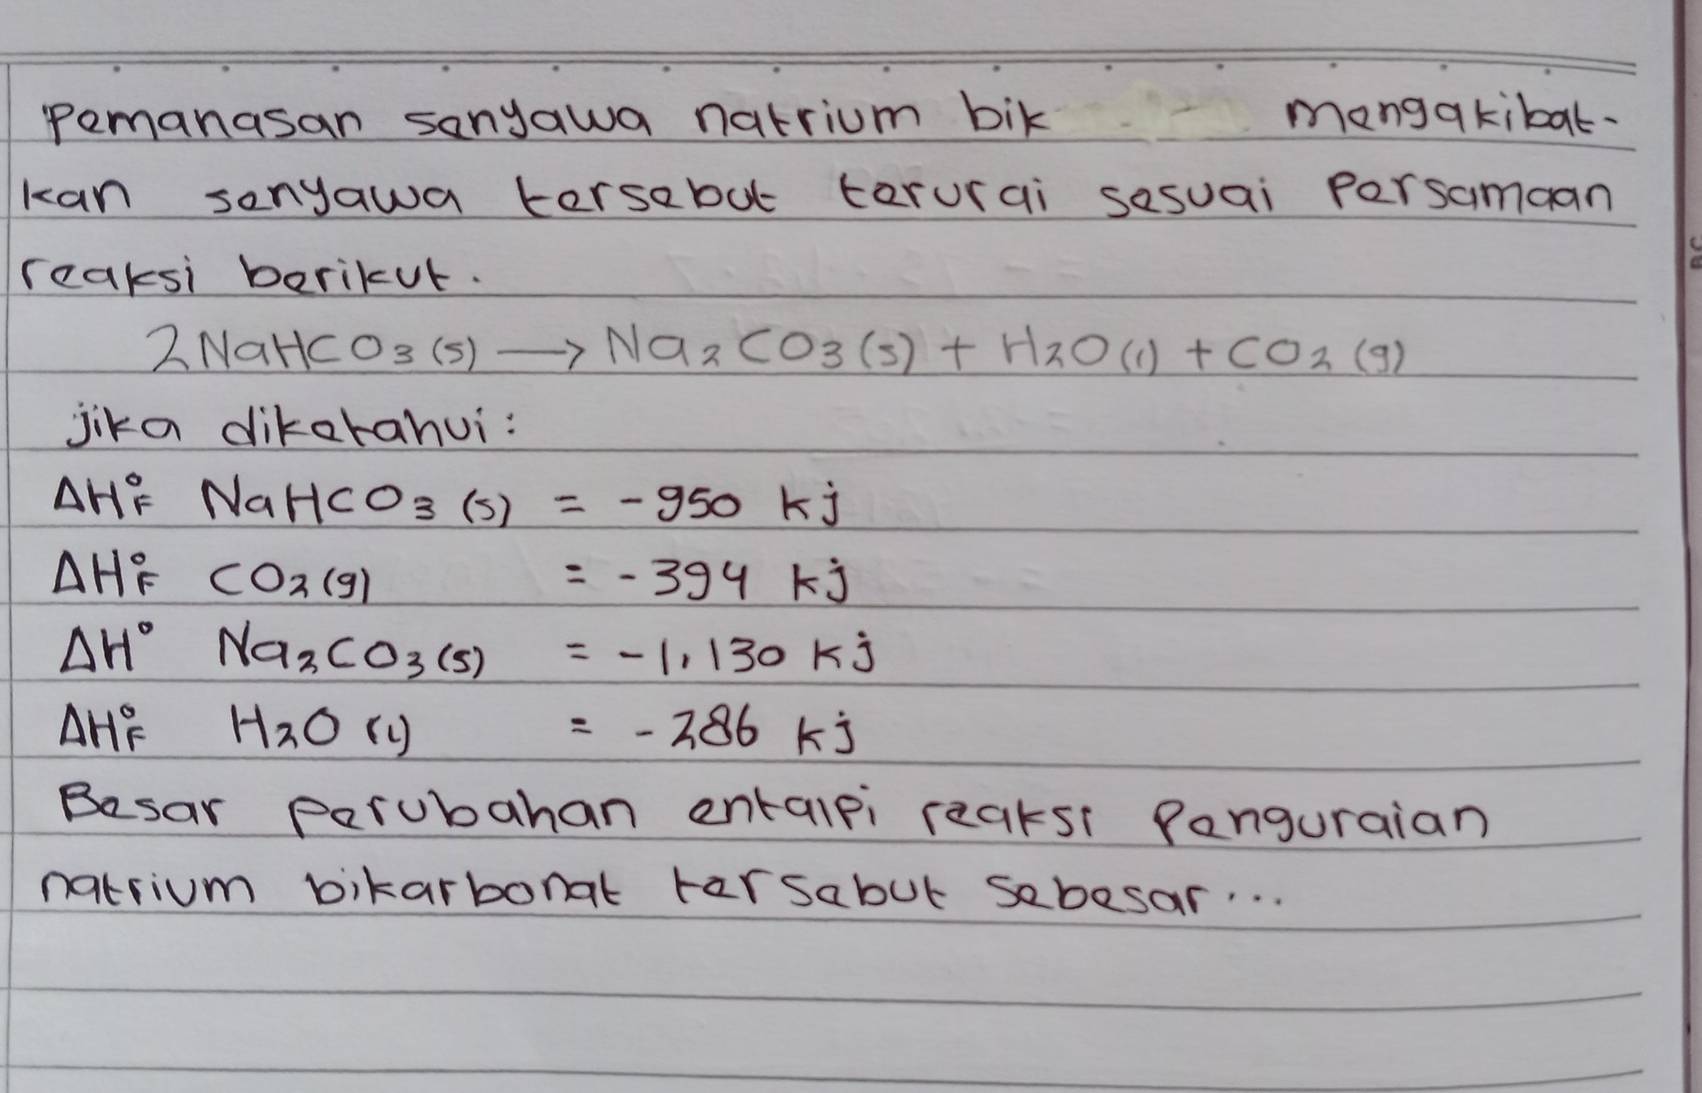 Pemanasan senyawa natrium bik mengakibat-
kan senyawa tersebut terurai sesuai persamaan
reaksi berikut.
2NaHCO3 (s) → Na2CO3 (s) + H2O (l) + CO2 (g)
jika diketahui:
ΔH°F NaHCO3 (s) = -950 kj
ΔH°F CO2 (g) = -394 kj
ΔH° Na2CO3 (s) = -1,130 kj
ΔH°F H2O (l) = -286 kj
Besar perubahan entalpi reaksi Penguraian
natrium bikarbonat tersebut sebesar...